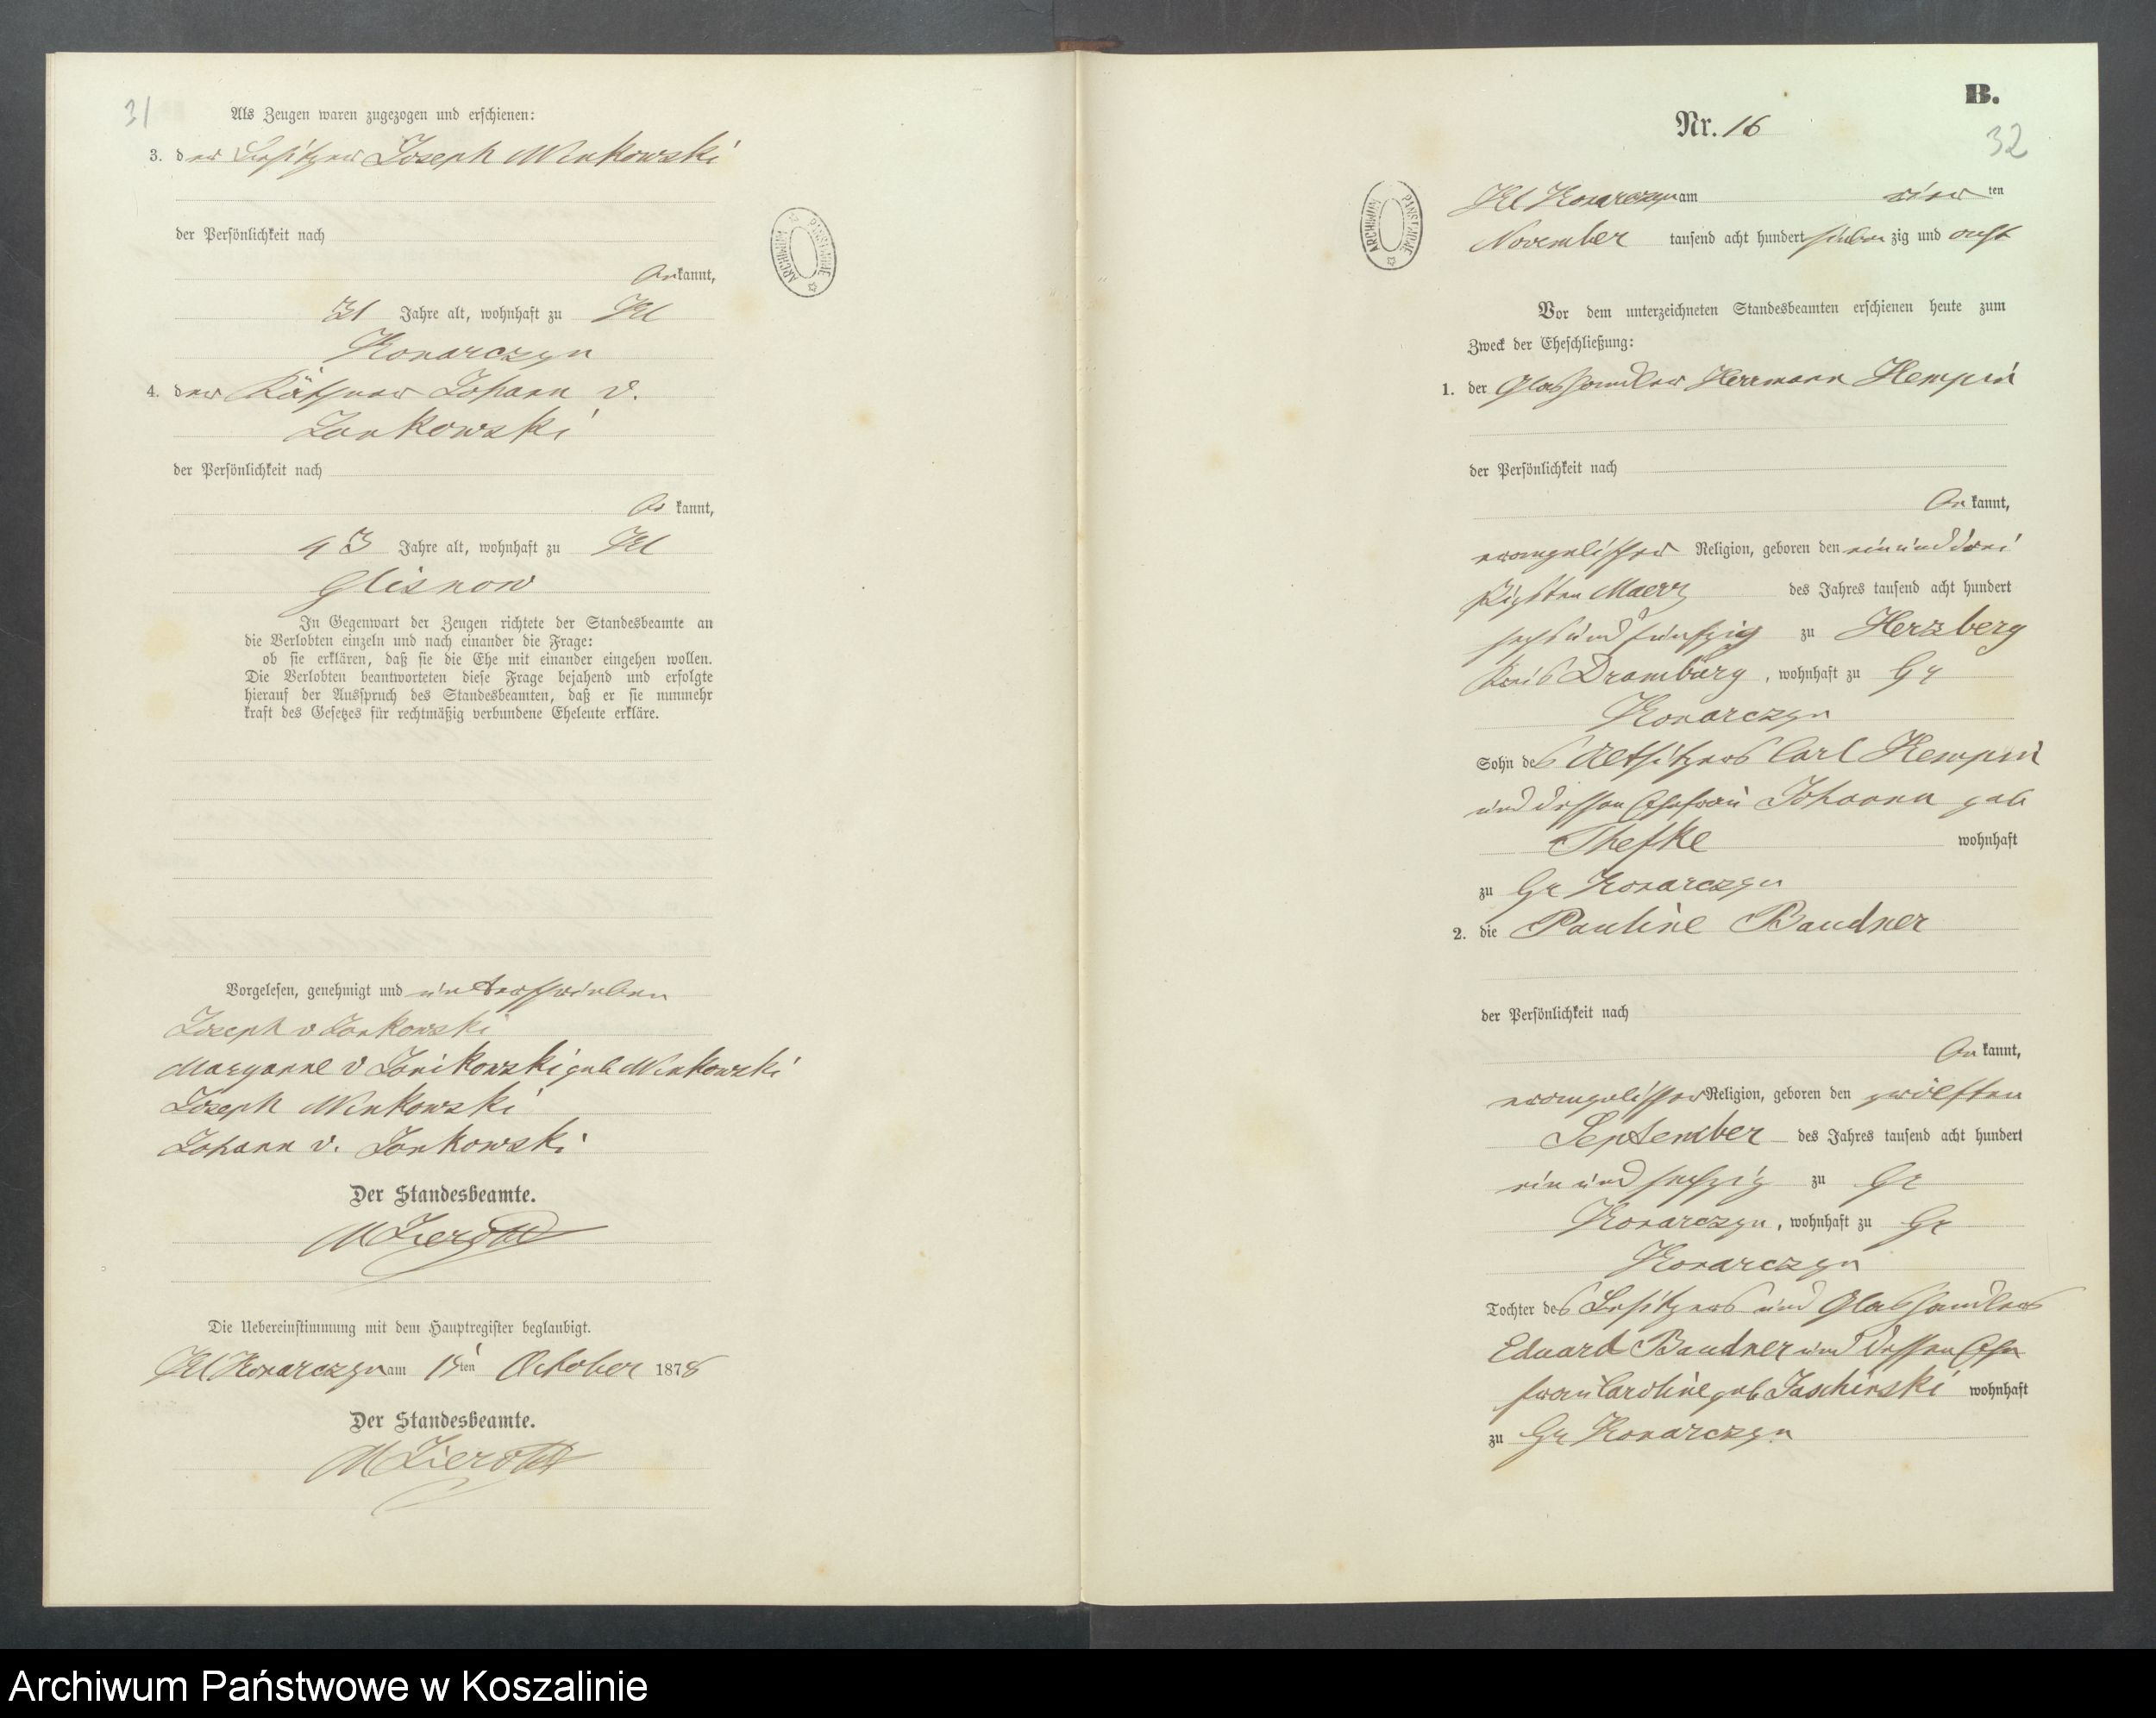 31
Als Zeugen waren zugezogen und erschienen:
3. der Besitzer Joseph Winkowski
der Persönlichkeit nach
bekannt,
31 Jahre alt, wohnhaft zu Kl
Konarczyn
4. der Käthner Johann v.
Jankowski
der Persönlichkeit nach
bekannt,
43 Jahre alt, wohnhaft zu Kl
Glisnow
In Gegenwart der Zeugen richtete der Standesbeamte an
die Verlobten einzeln und nach einander die Frage:
ob sie erklären, daß sie die Ehe mit einander eingehen wollen.
Die Verlobten beantworteten diese Frage bejahend und erfolgte
hierauf der Ausspruch des Standesbeamten, daß er sie nunmehr
kraft des Gesetzes für rechtmäßig verbundene Eheleute erkläre.
Vorgelesen, genehmigt und unterschrieben
Joseph v Jankowski
Maryanne v Jankowski geb Winkowski
Joseph Winkowski
Johann v. Jankowski
Der Standesbeamte.
Die Uebereinstimmung mit dem Hauptregister beglaubigt.
Kl Konarczyn am 15ten October 1878
Der Standesbeamte.
ARCHIWUM PAŃSTWOWE
B.
Nr. 16
32
ARCHIWUM PAŃSTWOWE
Kl Konarczyn am vier ten
November tausend acht hundert sieben zig und acht
Vor dem unterzeichneten Standesbeamten erschienen heute zum
Zweck der Eheschließung:
1. der Glashändler Herrmann Kempin
der Persönlichkeit nach
bekannt,
evangelischer Religion, geboren den einunddrei
ßigsten Maerz des Jahres tausend acht hundert
sechsundfünfzig zu Herzberg
Kreis Dramburg, wohnhaft zu Gr
Konarczyn
Sohn des Altsitzers Carl Kempin
und dessen Ehefrau Johanna geb
Thefke wohnhaft
zu Gr Konarczyn
2. die Pauline Bandner
der Persönlichkeit nach
bekannt,
evangelischer Religion, geboren den zwölften
September des Jahres tausend acht hundert
ein und sechzig zu Gr
Konarczyn, wohnhaft zu Gr
Konarczyn
Tochter des Besitzers und Glashändlers
Eduard Bandner und dessen Ehe
frau Caroline geb Jaschinski wohnhaft
zu Gr Konarczyn
Archiwum Państwowe w Koszalinie